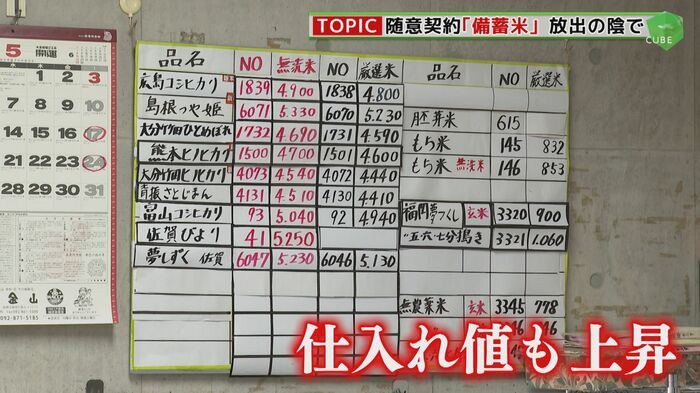 TOPIC 随意契約「備蓄米」放出の陰で
CUBE
5
木 金 土
1 2 3
7 8 9 10
14 15 16 17
21 22 23 24
28 29 30 31
金山
092-871-5185
品名 NO 無洗米 NO 厳選米
広島コシヒカリ 1839 4.900 1838 4.800
島根つや姫 6071 5.330 6070 5.230
大分竹田ひとめぼれ 1732 4.690 1731 4.590
熊本ヒノヒカリ 1500 4700 1501 4.600
大分竹田ヒノヒカリ 4073 4.540 4072 4.440
青森まさじまん 4131 4.510 4130 4.410
富山コシヒカリ 93 5.040 92 4.940
佐賀びより 41 5250
夢しずく 佐賀 6047 5.230 6046 5.130
品名 NO 厳選米
胚芽米 615
もち米 145 832
もち米 無洗米 146 853
福岡夢つくし 玄米 3320 900
〃五・六・七分搗き 3321 1.060
無農薬米 玄米 3345 778
仕入れ値も上昇